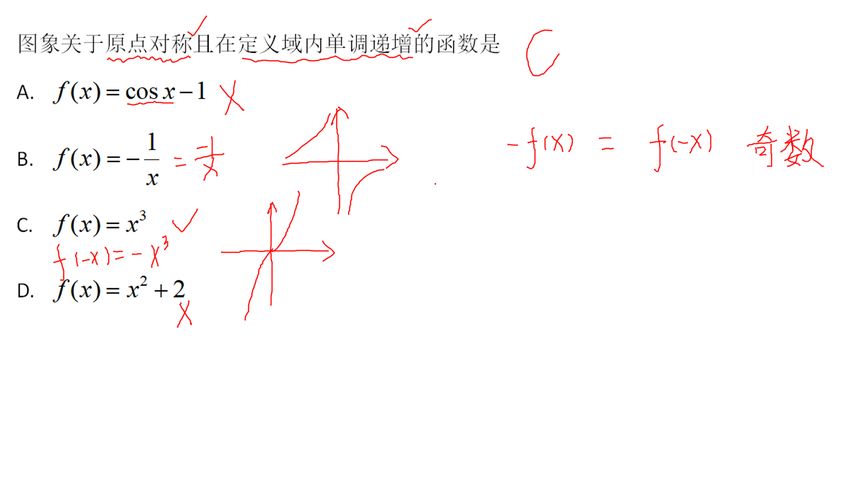 图象关于原点对称且在定义域内单调递增的函数是 C
A. f(x) = cos x − 1 X
B. f(x) = − 1/x = -1/x
-f(x) = f(-x) 奇数
C. f(x) = x³ ✓
f(-x) = -x³
D. f(x) = x² + 2 X